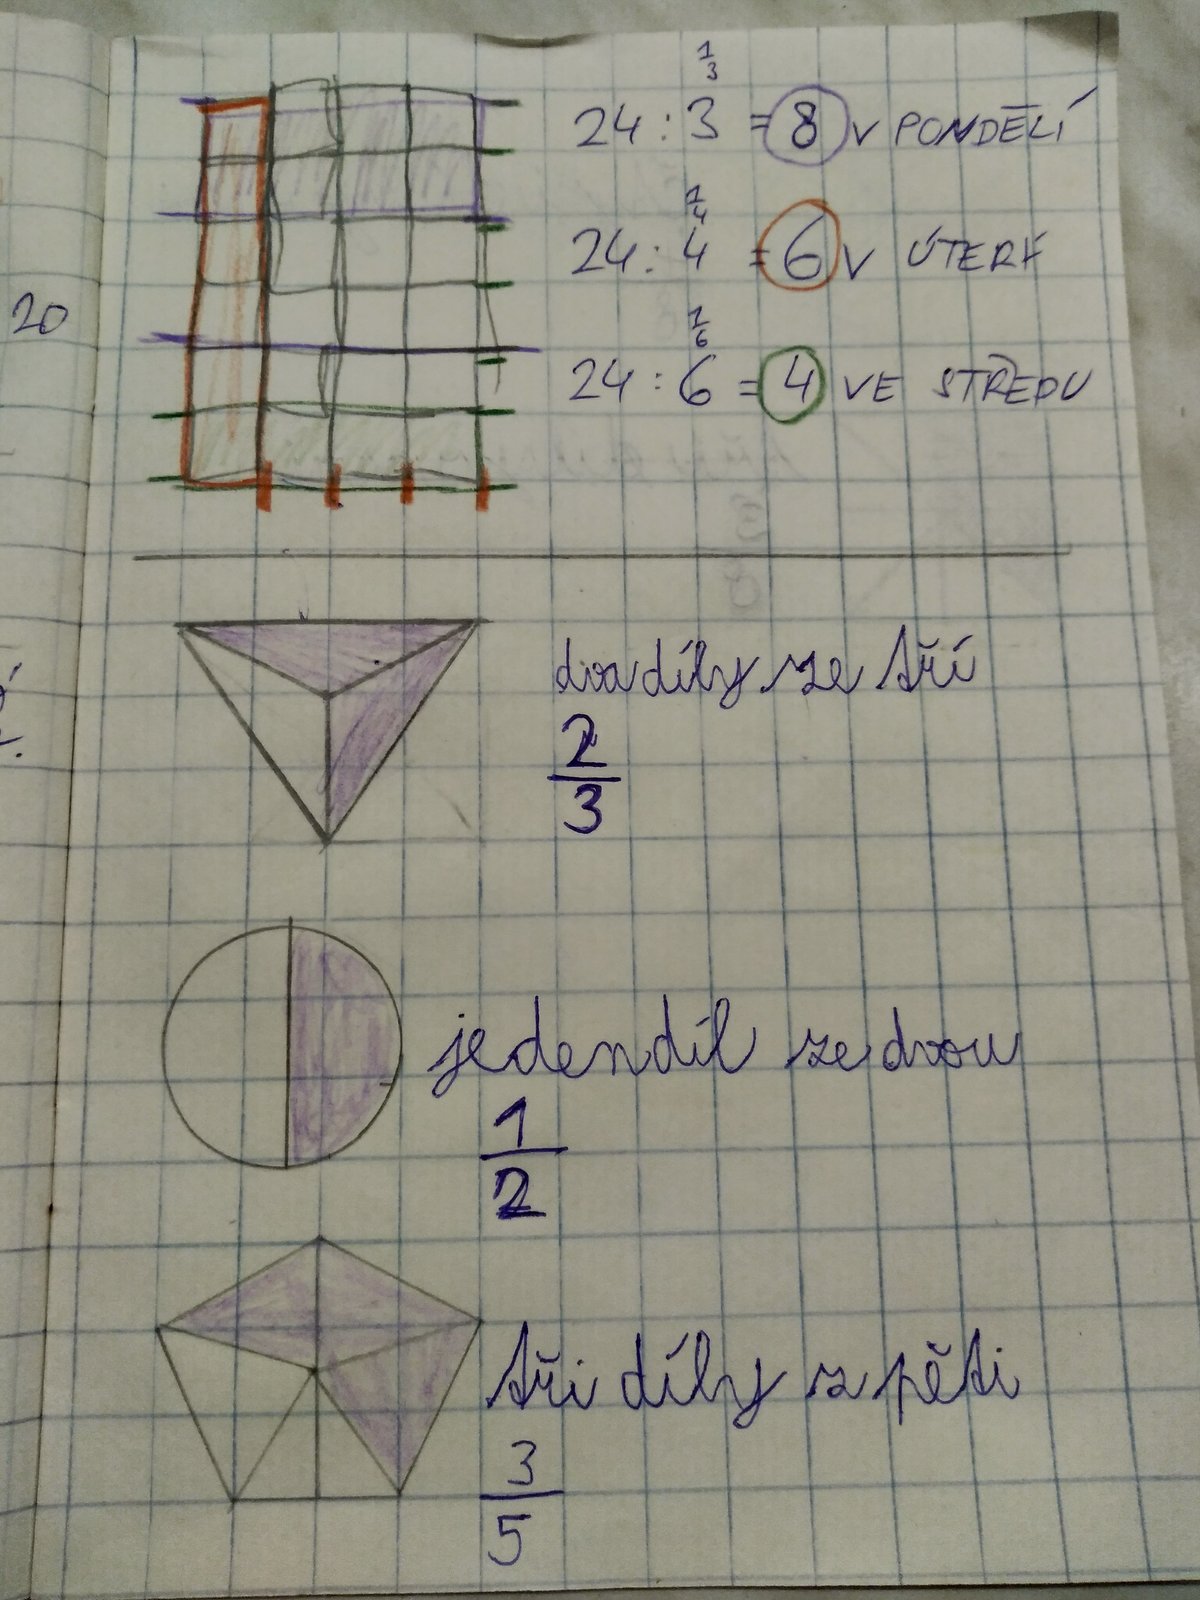 1/3
24 : 3 = 8 V PONDĚLÍ
1/4
24 : 4 = 6 V ÚTERÝ
1/6
24 : 6 = 4 VE STŘEDU
20
dva díly ze tří
2/3
jeden díl ze dvou
1/2
tři díly z pěti
3/5